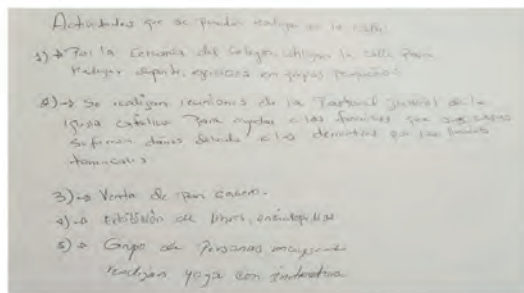 Actividades que se pueden realizar en la calle.
1) → Por la cercania del colegio utilizan la calle para
realizar deporte, ejercicios en grupos pequeños.
2) → Se realizan reuniones de la Pastoral juvenil de la
iglesia catolica para ayudar a las familias que sus casas
sufrieron daños debido a los derrumbes por las lluvias
torrenciales.
3) → Venta de pan casero.
4) → Exhibición de libros, enciclopedias
5) → Grupo de Personas mayores
realizan yoga con instructora